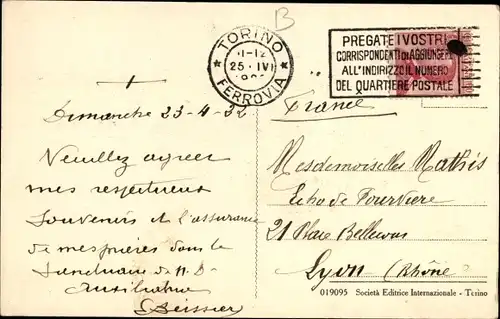 B
TORINO
FERROVIA
25·IV
PREGATE I VOSTRI
CORRISPONDENTI DI AGGIUNGERE
ALL'INDIRIZZO IL NUMERO
DEL QUARTIERE POSTALE
France
Dimanche 23-4-32
Veuillez agréer
mes respectueux
Souvenirs et l'assurance
de mes prières dans le
Sanctuaire de N. D
Auxiliatrice
Mesdemoiselles Mathis
Echo de Fourvière
21 Place Bellecour
Lyon (Rhône)
019095 Società Editrice Internazionale - Torino